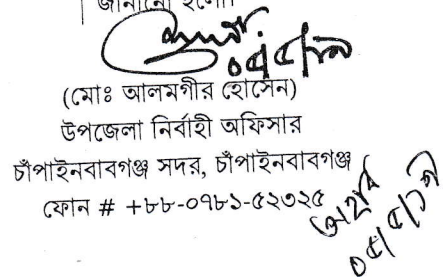 জানানো হলো।
০৫/৫/১৯
(মোঃ আলমগীর হোসেন)
উপজেলা নির্বাহী অফিসার
চাঁপাইনবাবগঞ্জ সদর, চাঁপাইনবাবগঞ্জ
ফোন # +৮৮-০৭৮১-৫২৩২৫
০৫/৫/১৯